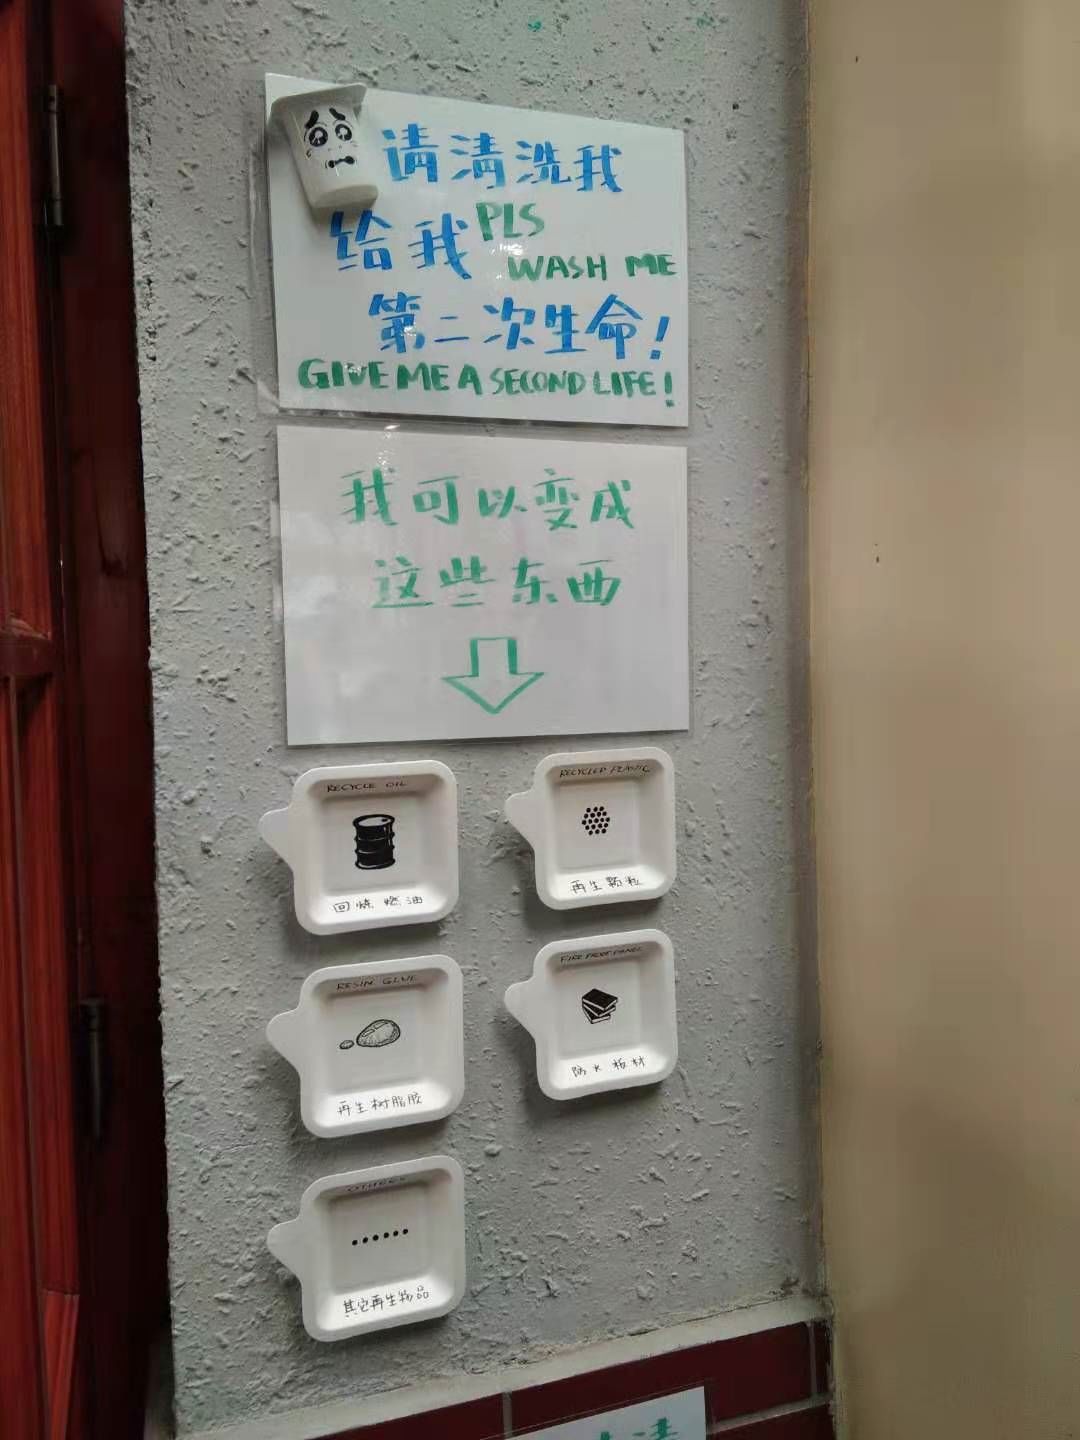 请清洗我
给我 PLS
WASH ME
第二次生命!
GIVE ME A SECOND LIFE!
我可以变成
这些东西
RECYCLE OIL
回烧燃油
RECYCLED PLASTIC
再生颗粒
RESIN GLUE
再生树脂胶
FIRE PROOF PANEL
防火板材
OTHERS
其它再生物品